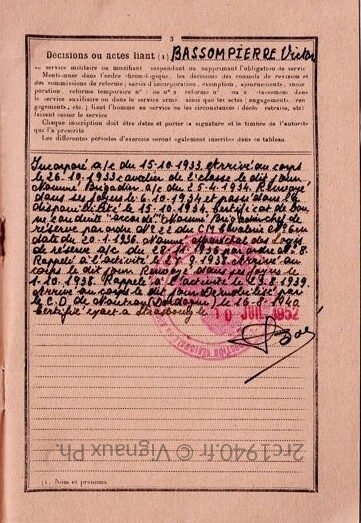 3
Décisions ou actes liant (1) BASSOMPIERRE Victor
au service militaire ou modifiant, suspendant ou supprimant l'obligation de servir
Mentionner dans l'ordre chronologique, les décisions des conseils de révision et
des commissions de réforme; sursis d'incorporation, exemption, ajournements, incor
poration, réforme temporaire nº 1 ou nº 2 réforme nº 1 ou 2 classement dans
le service auxiliaire ou dans le service armé ainsi que les actes ( engagements, ren
gagements, etc.) liant l'homme au service ou les circonstances ( décès, retraite, etc)
faisant cesser le service
Chaque inscription doit être datée et porter la signature et le timbre de l'autorité
qui l'a prescrite
Les différentes périodes d'exercice seront également inscrites dans ce tableau
Incorporé a/c du 15-10-1933 Arrivé au corps
le 26-10-1933 cavalier de 2 classe le dit jour
Nommé Brigadier a/c du 25-4-1934. Renvoyé
dans ses foyers le 6-10-1934 et passé dans la
disponibilité le 15-10-1934. Certificat de bon
ne conduite "accordé" Nommé Brigadier chef de
réserve par ordre nº 22 du CM Cavalerie nº 6 en
date du 20-1-1936. Nommé Maréchal des Logis
de réserve a/c du 28-11-1937 par ordre nº 8.
Rappelé à l'activité le 27-9-1938. Arrivé au
corps le dit jour. Renvoyé dans ses foyers le
1-10-1938. Rappelé à l'activité le 23-8-1939.
Arrivé au corps le dit jour Démobilisé par
le C.D. de (Dordogne) le 16-8-1940
Certifié exact à Strasbourg le 10 JUIL 1952
2rc1940.fr © Vignaux Ph.
(1) Nom et prénoms.